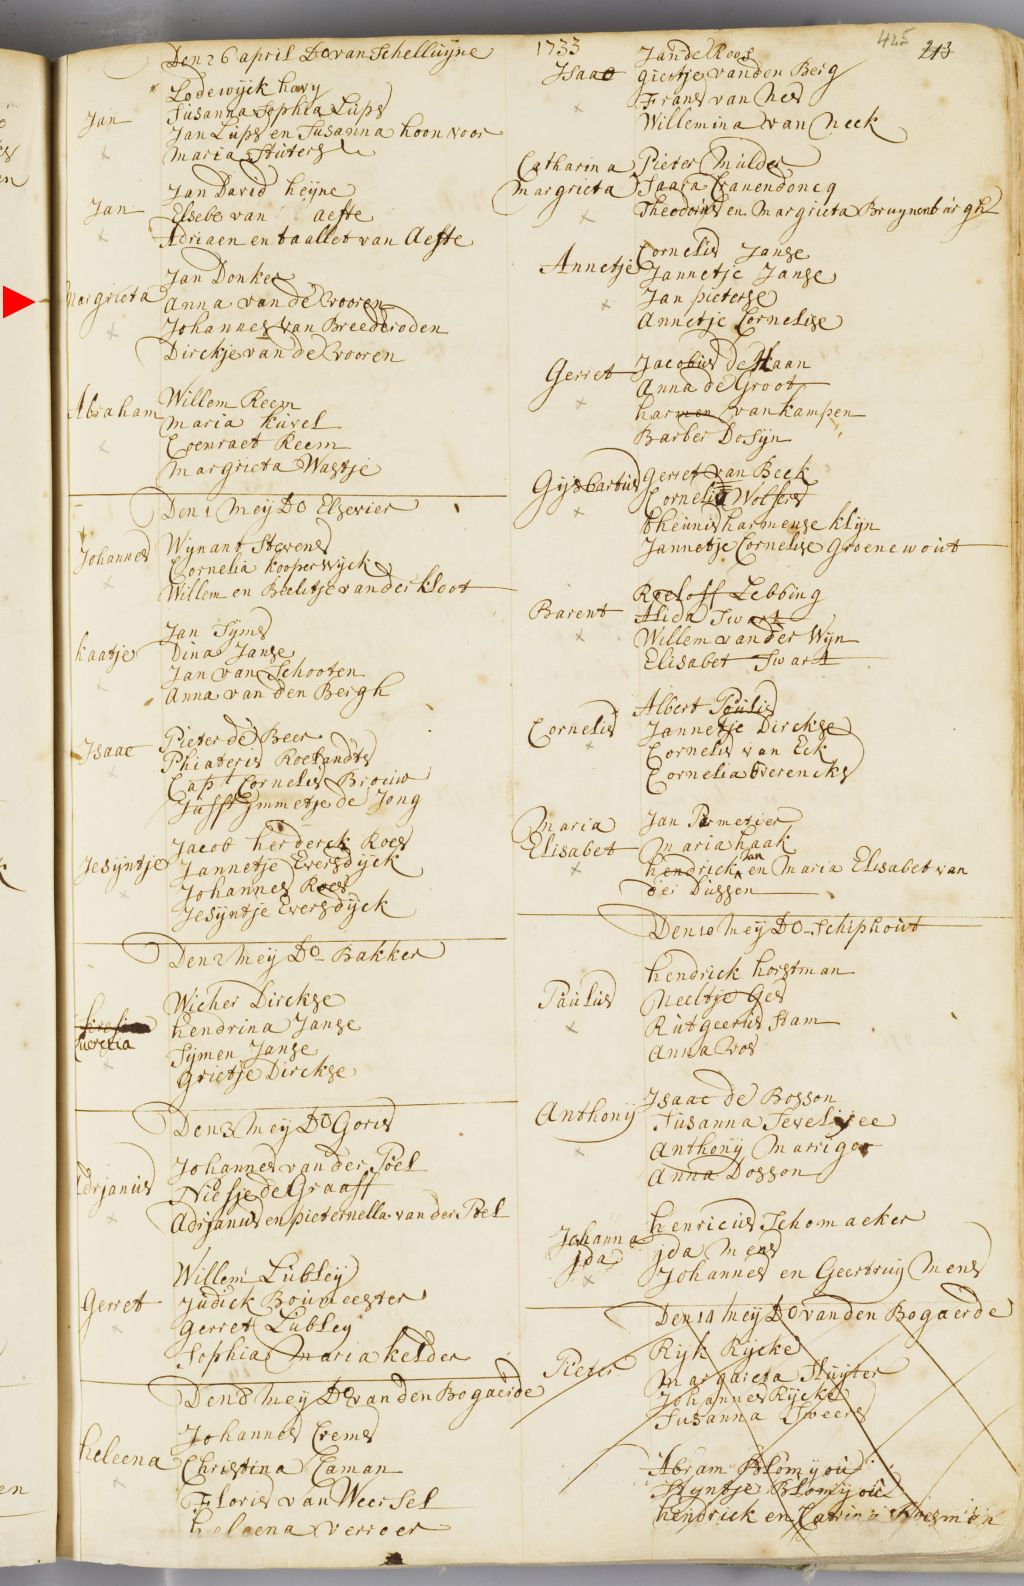 1733
425
213
Den 26 april Do van Schelluyne
Jan
Lodewijck havy
Susanna Sophia Lups
Jan Lups en Susanna hoon voor
Maria Sluters
Jan
Jan David heijne
Elsebe van aefte
Adriaen en van Aefte
Margrieta
Jan Donker
Anna van de Vooren
Johannes van Breederoden
Dirckje van de Vooren
Abraham
Willem Reem
Maria kuvel
Coenraet Reem
Margrieta Wastje
Den 1 Meij Do Elsevier
Johannes
Wijnant Stevens
Cornelia kooperwijck
Willem en Beeletje van der kloot
kaatje
Jan Syms
Dina Janse
Jan van Schooten
Anna van den Bergh
Isaac
Pieter de Beer
Roelandts
Cap Cornelis Brouw
Juff Emmetje de Jong
Jesijntje
Jacob herderck Roes
Jannetje Eversdijck
Johannes Roes
Jesijntje Eversdijck
Den 2 Meij Do Bakker
Lucretia
Wicher Dirckse
hendrina Janse
Sijmen Janse
Grietje Dirckse
Den 3 Meij Do Goris
Adrjanus
Johannes van der Poel
Niesje de Graaff
Adrjanus en pieternella van der Poel
Gerret
Willem Lubleij
Judick Boumeester
Gerret Lubley
Sophia Maria kelder
Den 8 Meij Do van den Bogaerde
heleena
Johannes Crems
Christina Eaman
Floris van Weersel
heleena verroer
Isaac
Jan de Roos
Giertje van den Berg
Frans van Nes
Willemina van Neek
Catharina
Margrieta
Pieter Mulder
Saara Cranendoncq
Theodorus en Margrieta Bruynenbargh
Annetje
Cornelis Janse
Jannetje Janse
Jan pieterse
Annetje Cornelise
Gerret
Jacobus de Haan
Anna de Groot
harmen van kampen
Barber Dosijn
Gijsbartus
Gerret van Beek
Cornelia Wolfers
theunis harmense klijn
Jannetje Cornelise Groenewout
Barent
Roeloff Lebbing
Alida Swart
Willem van der Wijn
Elisabet Swart
Cornelis
Albert Poulis
Jannetje Dirckse
Cornelis van Eck
Cornelia Berencks
Maria
Elisabet
Jan Parmetier
Maria haak
hendrick Jan en Maria Elisabet van
der Dussen
Den 10 Meij Do Schiphout
Paulus
hendrick horstman
Neeltje Ges
Rutgeerus Stam
Anna vos
Anthonij
Isaac de Bosson
Susanna
Anthonij Marrigor
Anna Dosson
Johanna
Ida
henricus Schomaeker
Ida Mens
Johannes en Geertruij Mens
Den 14 Meij Do van den Bogaerde
Pieter
Rijk Rijcke
Margareta Sluyter
Johannes Rijcke
Susanna Sweers
Abram Blomijou
Stijntje Blomijou
hendrick en Catrina